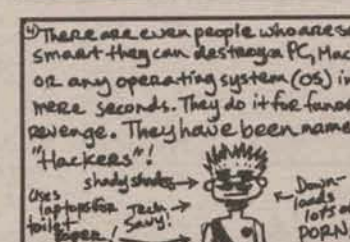 4) There are even people who are so
smart they can destroy a PC, Mac
or any operating system (OS) in
mere seconds. They do it for fun or
revenge. They have been name
"Hackers"!
shady shades →
Uses
laptops for
toilet
paper!
Tech →
Savy!
← Down-
loads
lots of
PORN